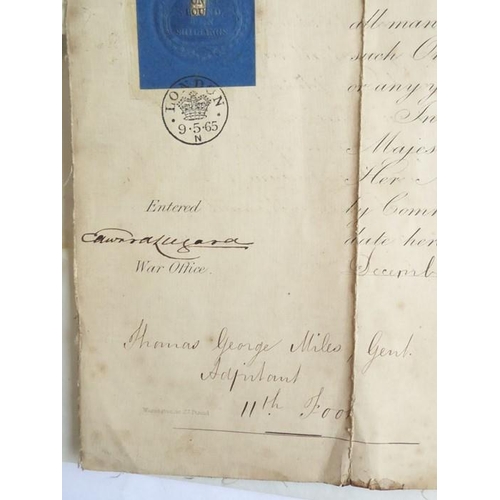 SHILLINGS
LONDON
9·5·65
N
all man
such O
or any y
In
Majes
Her
by Comm
date her
Decemb
Entered
Edward Lugard
War Office.
Thomas George Miles, Gent.
Adjutant
11th Foo